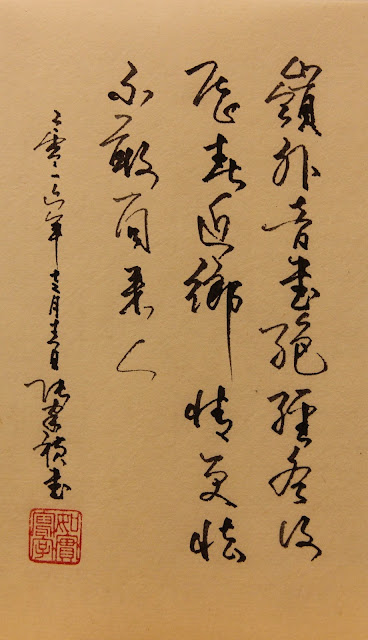 嶺外音書絕經冬復
歷春近鄉情更怯
不敢問來人
二零一六年十二月 日張 書
如實